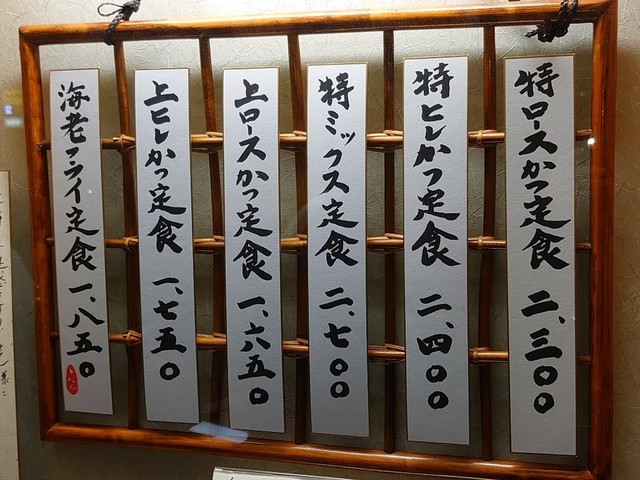 特ロースかつ定食 二、三〇〇
特ヒレかつ定食 二、四〇〇
特ミックス定食 二、七〇〇
上ロースかつ定食 一、六五〇
上ヒレかつ定食 一、七五〇
海老フライ定食 一、八五〇